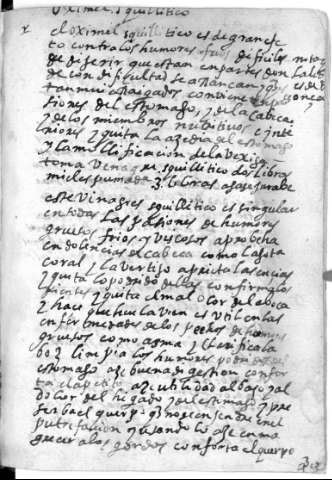 oximel squilitico
el oximel squillitico es de grande
to contra los humores frios dificiles
de dixerir que estan en partes donde
con dificultad se a Rancan y q es
tan mui a Raigados conviene
siones del estomago, y de la cabeza
y de los miembros nutritivos e inte
riores y quita la azedia del estomago
y la mollificacion de la vexiga
toma vinagre squillitico dos libras
miel espumada 3 libras agase xarabe
este vinagre squillitico es singular
en todas las pasiones de humores
gruesos frios y viscosos aprobecha
en dolencias de cabeca como la gota
coral y la vertigo aprieta las encias
y quita lo podrido dellas confirma los
dientes y quita el mal olor de la boca
y hace que huela vien es util en las
enfermedades de los pechos de humores
gruesos como asma y clerifica la
boz linpia los humores podridos del
estomago aze buena digestion confor
ta el apetito aze utilidad al bazo y al
dolor del higado y del estomago y pre
serba el querpo q no se encienda en el
putrefacion y usando lo aze en ma
grecer a los gordos conforta el querpo